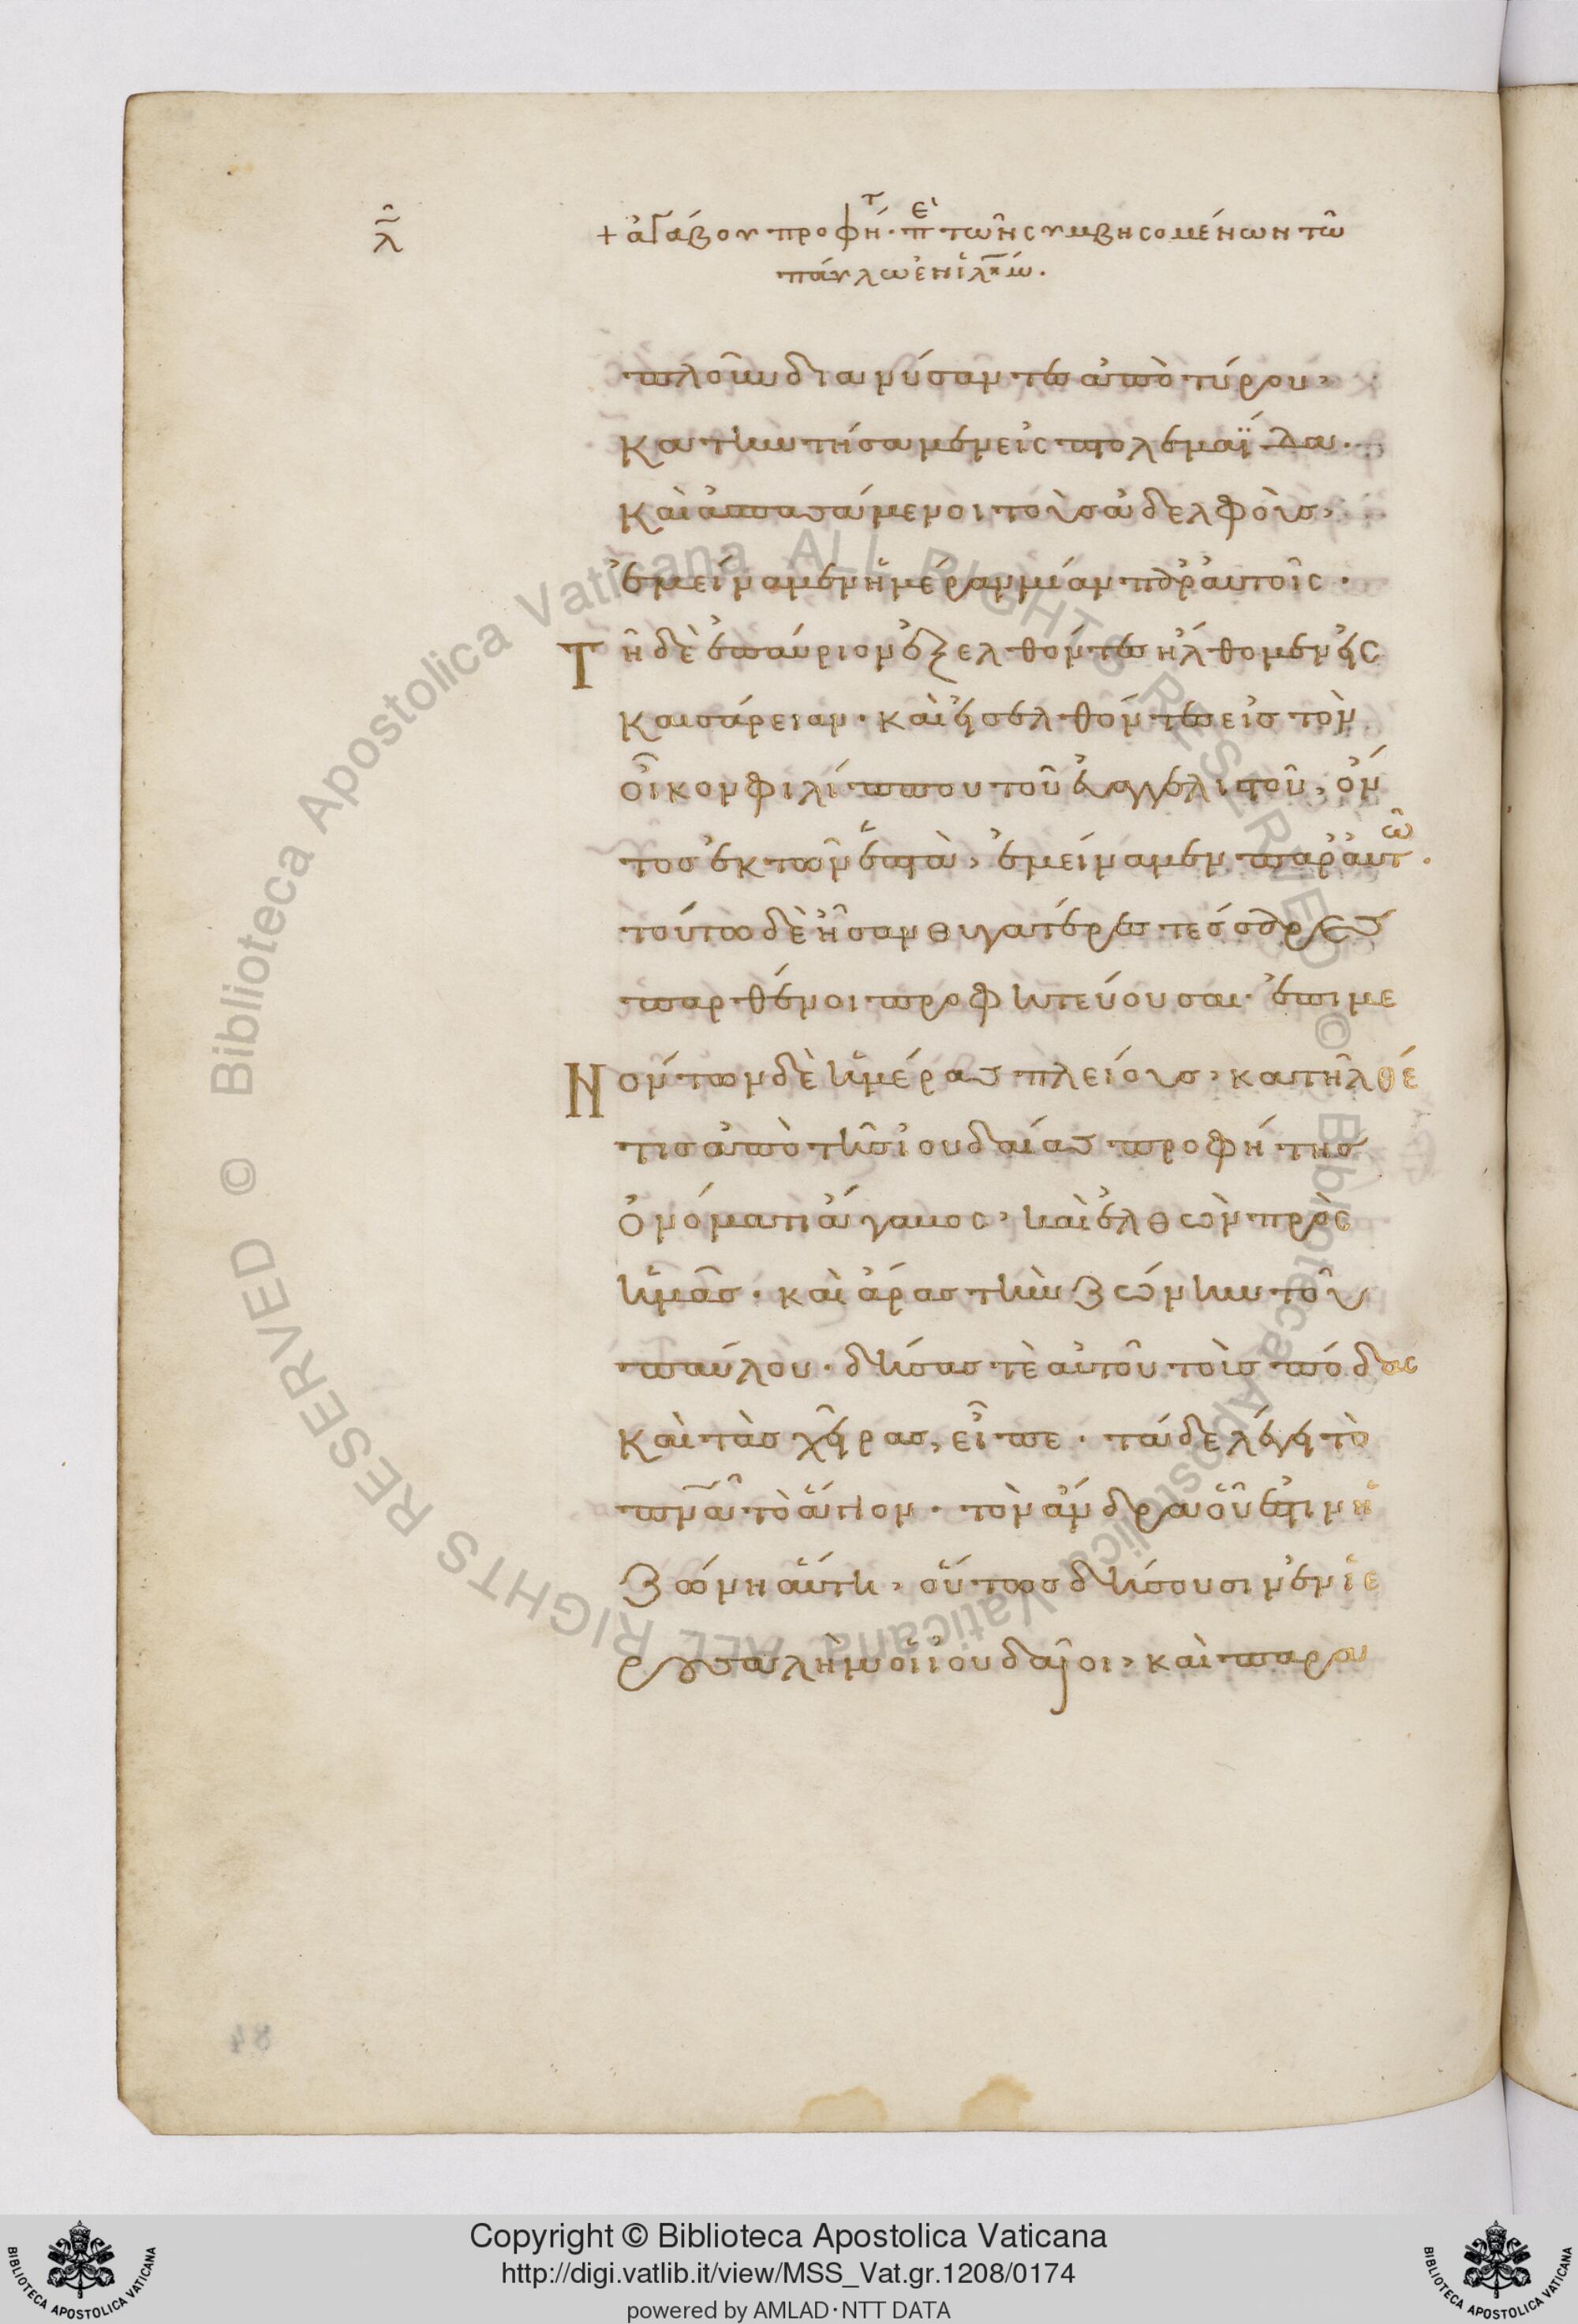 λ̑
+ ἀγάβου προφή^τ· π^{ει} τῶν συμβησομένων τῶ
παύλω ἐν ἱ̅λ̅η̅μ̅.
πλοῦν διανύσαντες ἀπὸ τύρου,
κατηντήσαμεν εἰς πτολεμαΐδα.
καὶ ἀσπασάμενοι τοὺς ἀδελφοὺς,
ἐμείναμεν ἡμέραν μίαν παρ' αὐτοῖς.
Τῆ δὲ ἐπαύριον ἐξελθόντες ἤλθομεν εἰς
καισάρειαν· καὶ εἰσελθόντες εἰς τὸν
οἶκον φιλίππου τοῦ εὐαγγελιστοῦ, ὄν
τος ἐκ τῶν ἑπτὰ, ἐμείναμεν παρ' αὐτῶ.
τούτω δὲ ἦσαν θυγατέρες τέσσαρες
παρθένοι προφητεύουσαι· ἐπιμε
Νόντων δὲ ἡμέρας πλείους, κατῆλθέ
τις ἀπὸ τῆς ἰουδαίας προφήτης
ὀνόματι ἄγαβος, καὶ ἐλθὼν πρὸς
ἡμᾶς· καὶ ἄρας τὴν ζώνην τοῦ
παύλου· δήσας τὲ αὐτοῦ τοὺς πόδας
καὶ τὰς χεῖρας, εἶπε· τάδε λέγει τὸ
π̅ν̅α̅ τὸ ἅγιον· τὸν ἄνδρα οὗ ἐστιν ἡ
ζώνη αὕτη, οὕτως δήσουσιν ἐν ἱε
ρουσαλὴμ οἱ ἰουδαῖοι, καὶ παρα
84
© Biblioteca Apostolica Vaticana ALL RIGHTS RESERVED © Biblioteca Apostolica Vaticana ALL RIGHTS RESERVED
Copyright © Biblioteca Apostolica Vaticana
http://digi.vatlib.it/view/MSS_Vat.gr.1208/0174
powered by AMLAD·NTT DATA
BIBLIOTECA APOSTOLICA VATICANA
BIBLIOTECA APOSTOLICA VATICANA